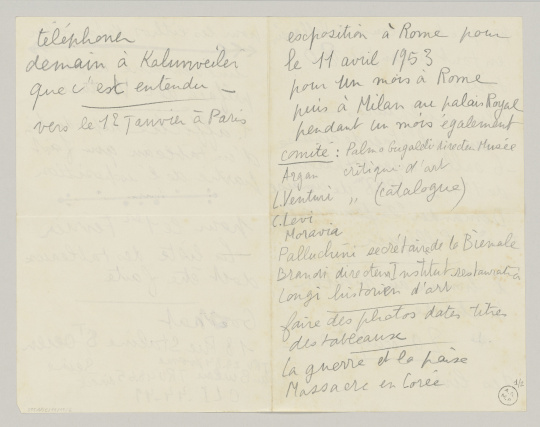 téléphoner
demain à Kahnweiler
que c'est entendu —
vers le 12 Janvier à Paris
exposition à Rome pour
le 11 avril 1953
pour un mois à Rome
puis à Milan au palais Royal
pendant un mois également
comité : Palma directeur Musée
Argan critique d'art
L. Venturi ,, (catalogue)
C. Levi
Moravia
Palluchini secrétaire de la Biennale
Brandi directeur Institut restauration
Longi historien d'art
faire des photos dates titres
des tableaux
La guerre et la paix
Massacre en Corée